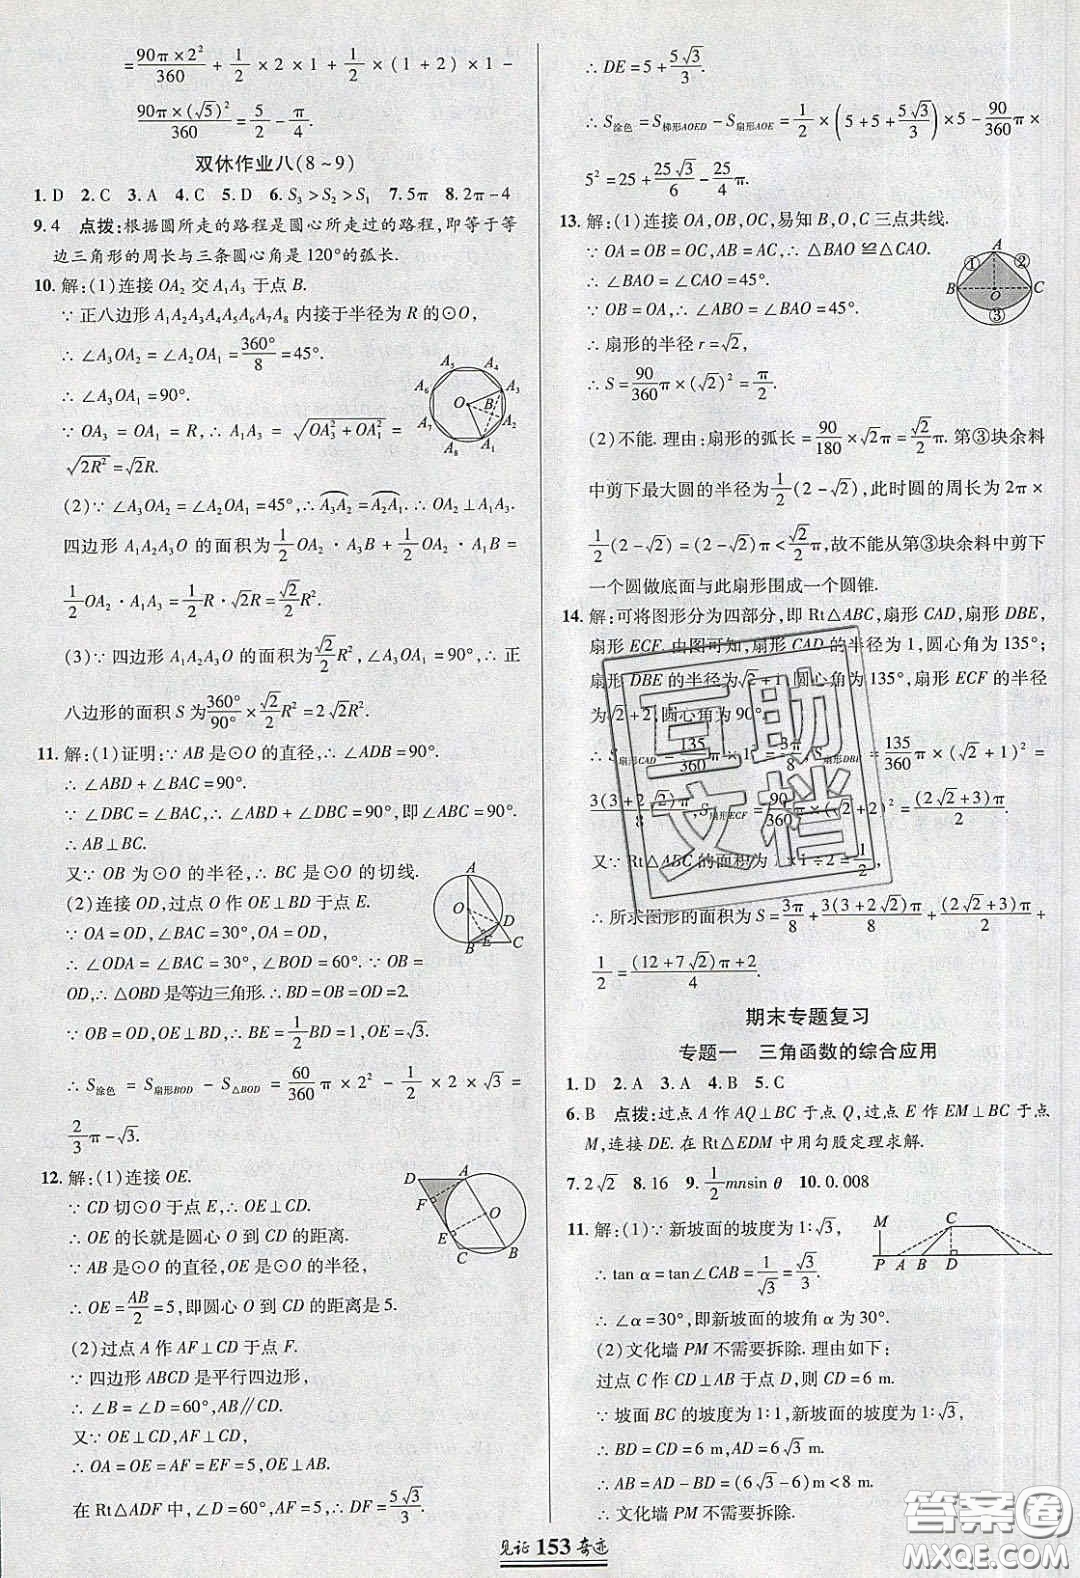 =90π×2²/360+1/2×2×1+1/2×(1+2)×1-
90π×(√5)²/360=5/2-π/4.
双休作业八(8~9)
1. D 2. C 3. A 4. C 5. D 6. S₃>S₂>S₁ 7. 5π 8. 2π-4
9. 4 点拨:根据圆所走的路程是圆心所走过的路程,即等于等
边三角形的周长与三条圆心角是120°的弧长.
10. 解:(1)连接OA₂交A₁A₃于点B.
∵正八边形A₁A₂A₃A₄A₅A₆A₇A₈内接于半径为R的⊙O,
∴∠A₃OA₂=∠A₂OA₁=360°/8=45°.
∴∠A₃OA₁=90°.
∵OA₃=OA₁=R,∴A₁A₃=√(OA₃²+OA₁²)=
√(2R²)=√2R.
(2)∵∠A₃OA₂=∠A₂OA₁=45°,∴A₃A₂=A₂A₁.∴OA₂⊥A₁A₃.
四边形A₁A₂A₃O的面积为1/2OA₂·A₃B+1/2OA₂·A₁B=
1/2OA₂·A₁A₃=1/2R·√2R=√2/2R².
(3)∵四边形A₁A₂A₃O的面积为√2/2R²,∠A₃OA₁=90°,∴正
八边形的面积S为360°/90°×√2/2R²=2√2R².
A₅ A₄ A₆ A₃ O B A₇ A₂ A₈ A₁
11. 解:(1)证明:∵AB是⊙O的直径,∴∠ADB=90°.
∴∠ABD+∠BAC=90°.
∵∠DBC=∠BAC,∴∠ABD+∠DBC=90°,即∠ABC=90°.
∴AB⊥BC.
又∵OB为⊙O的半径,∴BC是⊙O的切线.
(2)连接OD,过点O作OE⊥BD于点E.
∵OA=OD,∠BAC=30°,
∴∠ODA=∠BAC=30°,∠BOD=60°.∵OB=
OD,∴△OBD是等边三角形.∴BD=OB=OD=2.
∵OB=OD,OE⊥BD,∴BE=1/2BD=1,OE=√3.
∴S涂色=S扇形BOD-S△BOD=60/360π×2²-1/2×2×√3=
2/3π-√3.
A O D B E C
12. 解:(1)连接OE.
∵CD切⊙O于点E,∴OE⊥CD.
∴OE的长就是圆心O到CD的距离.
∵AB是⊙O的直径,OE是⊙O的半径,
∴OE=AB/2=5,即圆心O到CD的距离是5.
(2)过点A作AF⊥CD于点F.
∵四边形ABCD是平行四边形,
∴∠B=∠D=60°,AB∥CD.
又∵OE⊥CD,AF⊥CD,
∴OA=OE=AF=EF=5,OE⊥AB.
在Rt△ADF中,∠D=60°,AF=5,∴DF=5√3/3.
D A F O E C B
∴DE=5+5√3/3.
∴S涂色=S梯形AOED-S扇形AOE=1/2×(5+5+5√3/3)×5-90/360π×
5²=25+25√3/6-25/4π.
13. 解:(1)连接OA,OB,OC,易知B,O,C三点共线.
∵OA=OB=OC,AB=AC,∴△BAO≌△CAO.
∴∠BAO=∠CAO=45°.
∵OB=OA,∴∠ABO=∠BAO=45°.
∴扇形的半径r=√2,
∴S=90/360π×(√2)²=π/2.
A ① ② B O C ③
(2)不能.理由:扇形的弧长=90/180×√2π=√2/2π.第③块余料
中剪下最大圆的半径为1/2(2-√2),此时圆的周长为2π×
1/2(2-√2)=(2-√2)π<√2/2π,故不能从第③块余料中剪下
一个圆做底面与此扇形围成一个圆锥.
14. 解:可将图形分为四部分,即Rt△ABC,扇形CAD,扇形DBE,
扇形ECF.由图可知,扇形CAD的半径为1,圆心角为135°;
扇形DBE的半径为√2+1,圆心角为135°,扇形ECF的半径
为√2+2,圆心角为90°.
∴S扇形CAD=135/360π×1²=3π/8,S扇形DBE=135/360π×(√2+1)²=
3(3+2√2)π/8,S扇形ECF=90/360π×(√2+2)²=(2√2+3)π/2.
又∵Rt△ABC的面积为1×1÷2=1/2,
∴所求图形的面积为S=3π/8+3(3+2√2)π/8+(2√2+3)π/2+
1/2=(12+7√2)π+2/4.
期末专题复习
专题一 三角函数的综合应用
1. D 2. A 3. A 4. B 5. C
6. B 点拨:过点A作AQ⊥BC于点Q,过点E作EM⊥BC于点
M,连接DE.在Rt△EDM中用勾股定理求解.
7. 2√2 8. 16 9. 1/2mnsin θ 10. 0.008
11. 解:(1)∵新坡面的坡度为1∶√3,
∴tan α=tan∠CAB=1/√3=√3/3.
∴∠α=30°,即新坡面的坡角α为30°.
M C P A B D
(2)文化墙PM不需要拆除.理由如下:
过点C作CD⊥AB于点D,则CD=6 m.
∵坡面BC的坡度为1∶1,新坡面的坡度为1∶√3,
∴BD=CD=6 m,AD=6√3 m.
∴AB=AD-BD=(6√3-6)m<8 m.
∴文化墙PM不需要拆除.
见证 153 奇迹
互助文档
答案圈
MXQE.COM